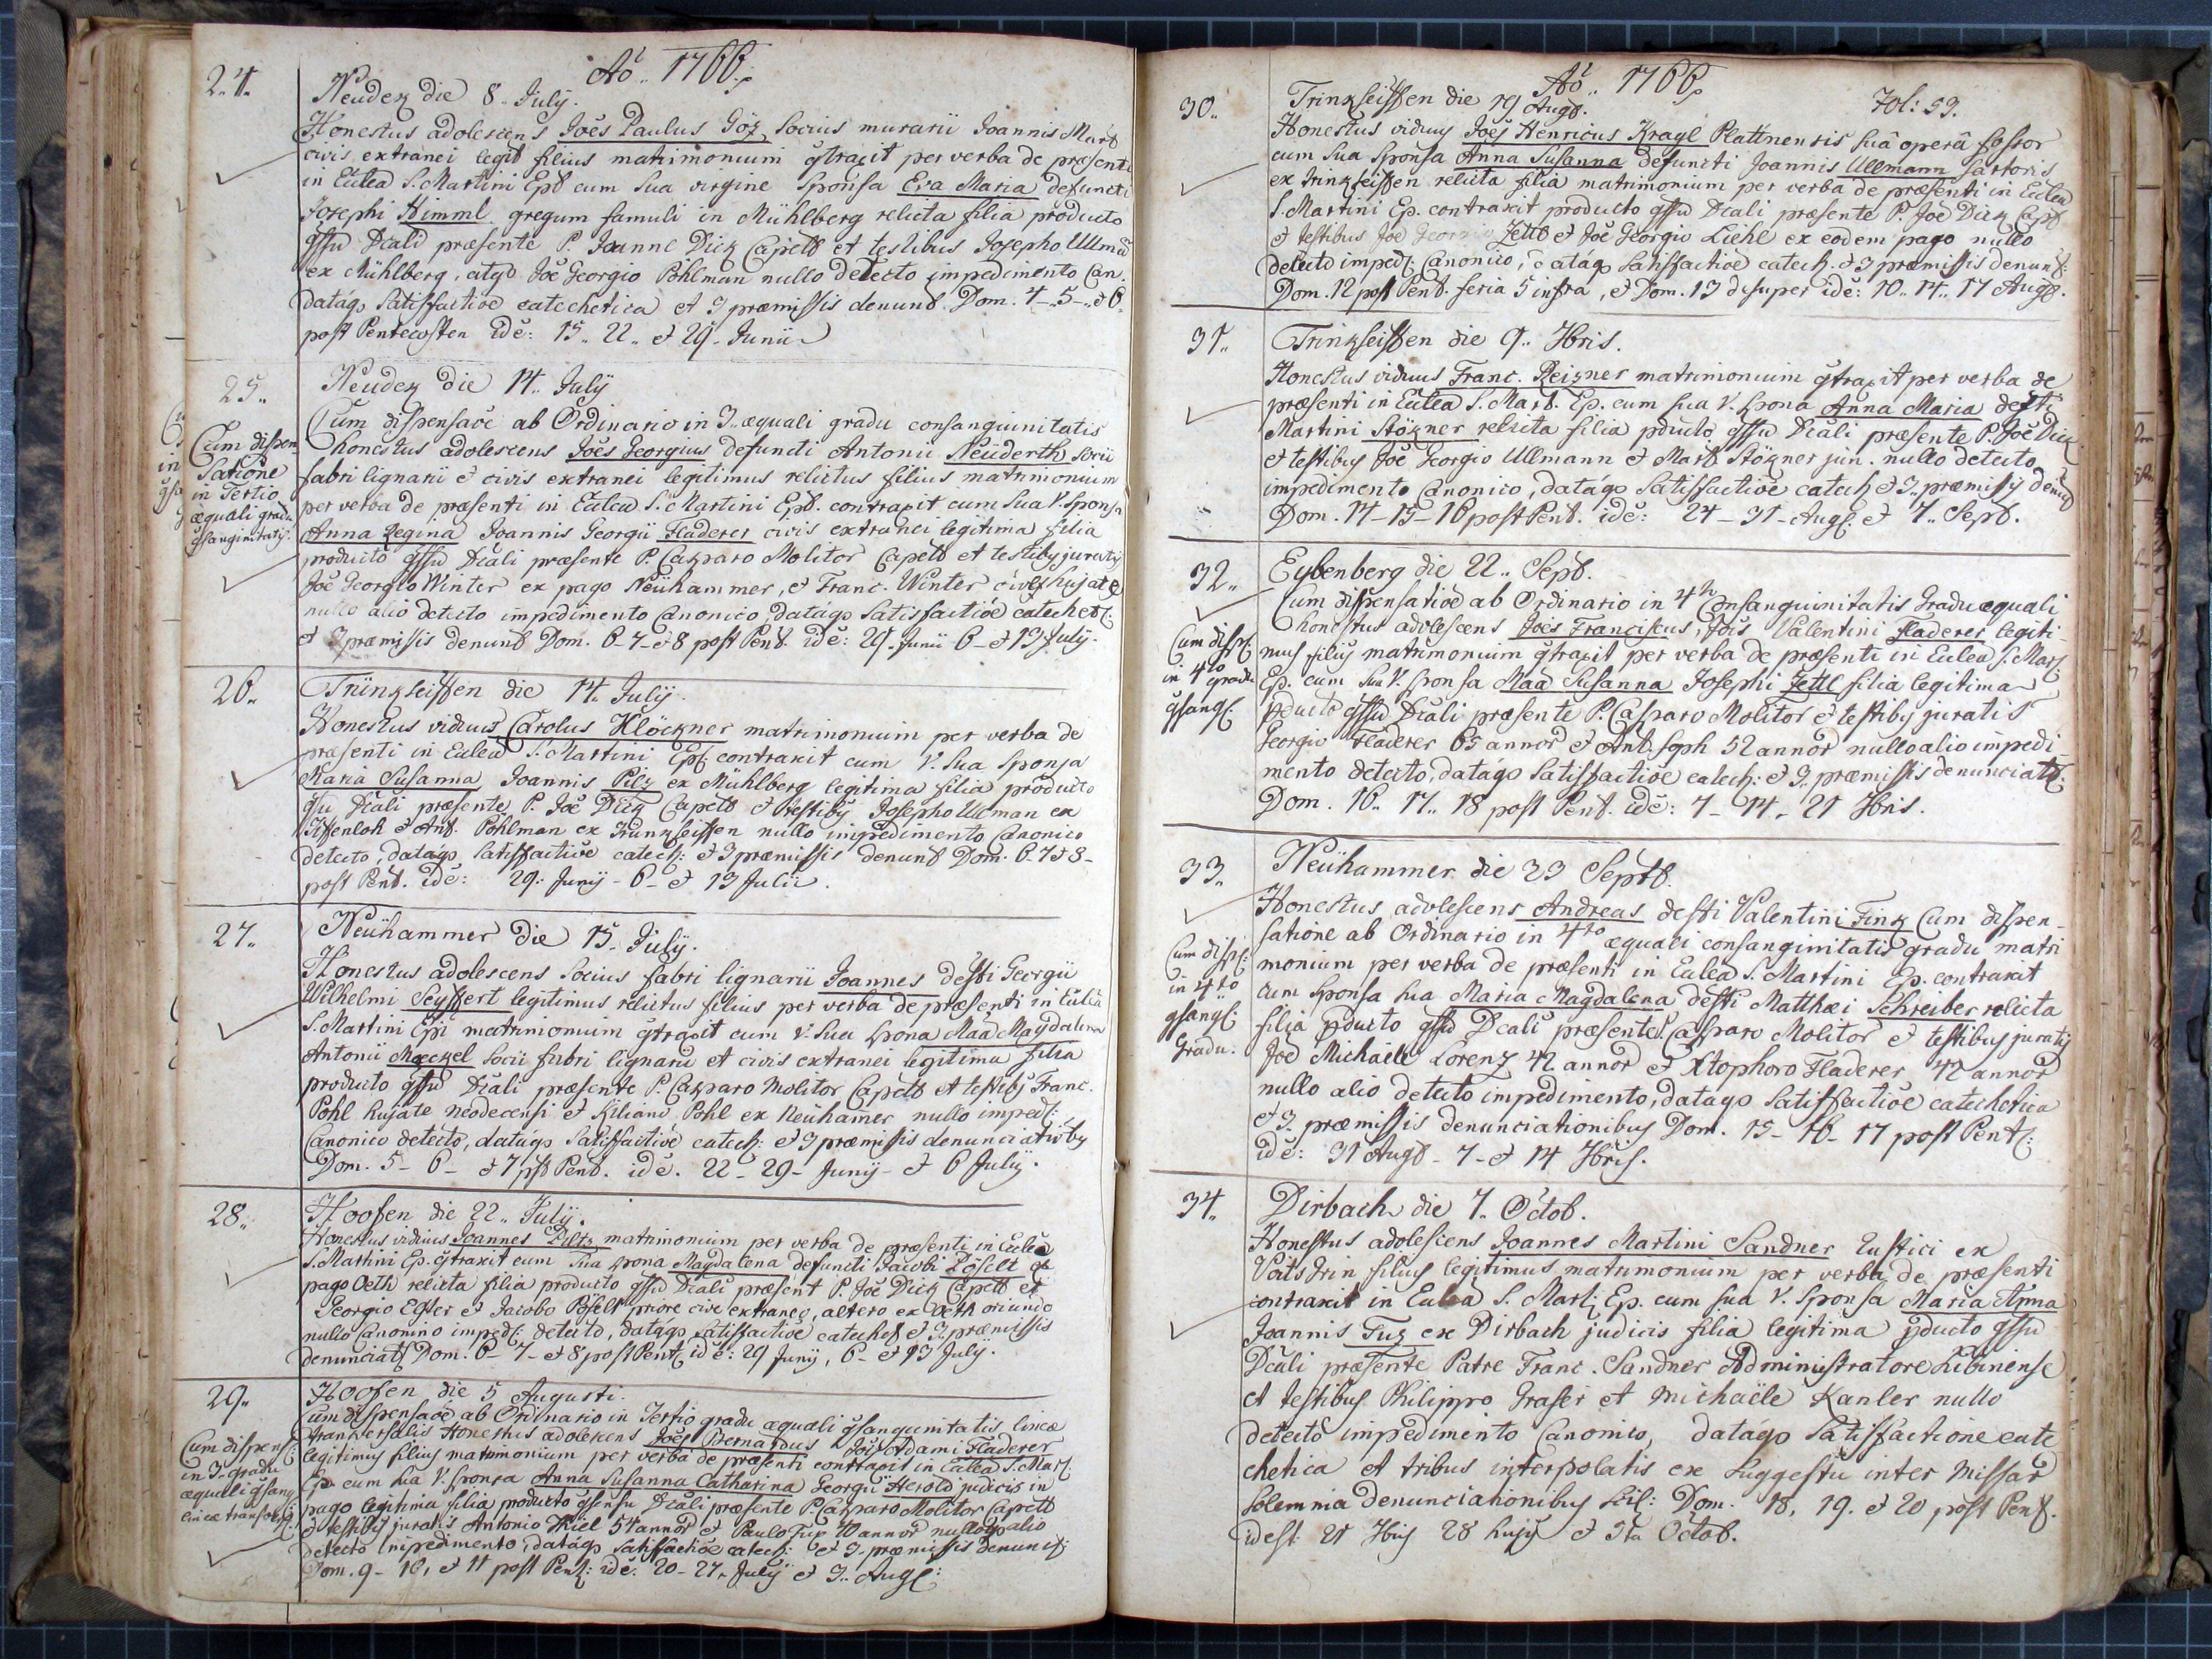 Aō 1766.
24. Neudek die 8. July.
Honestus adolescens Joes Paulus Göz Socius murarii Joannis Mart
civis extranei legit filius matrimonium gtraxit per verba de præsenti
in Ecclea S. Martini Epō cum Sua virgine Sponsa Eva Maria defuncti
Josephi Himml gregum famuli in Mühlberg relicta filia producto
gssu Dcali præsente P. Joanne Dick Capello et testibus Josepho Ullmā
ex Mühlberg, atqo Joē Georgio Pöhlman nullo detecto impedimento Can.
datāqo Satisfactioē catechetica et 3 præmissis denunt. Dom. 4-5- et 6.
post Pentecosten idē: 15. 22. et 29. Junii
25. Neudek die 14. July
Cum dispensaōe ab Ordinario in 3. æquali gradu consanguinitatis
honestus adolescens Joēs Georgius defuncti Antonii Neüderth Socii
fabri lignarii et civis extranei legitimus relictus filius matrimonium
per verba de præsenti in Ecclea S. Martini Epō. contraxit cum Sua V. Sponsa
Anna Regina Joannis Georgii Fladerer civis extranei legitima filia
producto gssu Dcali præsente P. Casparo Molitor Capello et testiby juratis
Joē Georgio Winter ex pago Neühammer, et Franc. Winter cives hujate
nullo alio detecto impedimento Canonico, datāqo Satisfactioē catechet:
et 3 præmissis denunt Dom. 6-7-et 8 post Pent. idē: 29. Junii 6-et 13 July.
Cum dispen-
satione
in Tertio
æquali gradu
gsanguinitatis.
26. Trünkseiffen die 14. July.
Honestus viduus Carolus Klöckner matrimonium per verba de
præsenti in Ecclea S. Martini Ep. contraxit cum V. Sua Sponsa
Maria Susanna Joannis Pilz ex Mühlberg legitima filia producto
gssu Dcali præsente P. Joē Dick Capello et testiby Josepho Ullman ex
et Ant. Pöhlman ex Trünkseiffen nullo impedimento Canonico
detecto, datāqo Satisfactioē catech: et 3 præmissis denunt Dom. 6. 7 et 8-
post Pent. idē: 29. Junij - 6- et 13 Julii.
27. Neühammer die 15. July.
Honestus adolescens Socius fabri lignarii Joannes defti Georgii
Wilhelmi Seyffert legitimus relictus filius per verba de præsenti in Ecclea
S. Martini Epi matrimonium gtraxit cum V. Sua Spona Maā Magdalena
Antonii Mæckel Socii fabri lignarii et civis extranei legitima filia
producto gssu Dcali præsente P. Casparo Molitor Capello et testiby Franc.
Pohl hujate neodecensi et Kiliano Pohl ex Neühamer nullo imped:
Canonico detecto, datāqo Satisfactioē catech: et 3 præmissis denunciatioby
Dom. 5- 6- et 7 pst Pent. idē. 22 - 29- Junij - et 6 July.
28. Hoofen die 22. July.
Honestus viduus Joannes Piltz matrimonium per verba de præsenti in Ecclea
S. Martini Ep. gtraxit cum Sua Spona Magdalena defuncti Jacobi Löselt ex
pago Oeth relicta filia producto gssu Dcali præsent P. Joē Dick Capello et
Georgio Egler et Jacobo Poselt priore cive extraneo, altero ex Oeth oriundo
nullo Canonino imped: detecto, datāqo Satisfactioē catechet et 3 præmissis
denunciat Dom. 6- 7- et 8 post Pent idē: 29 Junij, 6- et 13 July.
29. Hoofen die 5 Augusti.
Cum dispensaōe ab Ordinario in Tertio gradu æquali gsanguinitatis lineæ
transversalis Honestus adolescens Joēs Bernardus Jois Adami Fladerer
legitimus filius matrimonium per verba de præsenti contraxit in Ecclea S. Mart:
Ep cum Sua V. Sponsa Anna Susanna Catharina Georgii Herold judicis in
pago legitima filia producto gsensu Dcali præsente P. Casparo Molitor Capello
et testiby juratis Antonio Kiel 54 annor et Paulo Fux 40 annor nullo alio
detecto impedimento, datāqo Satisfactioē catech: et 3 præmissis denunt:
Dom. 9- 10, et 11 post Pent: idē. 20- 27. July et 3. Aug:
Cum dispens:
in 3- gradu
æquali gsang
lineæ transvers:
Aō 1766.
Fol: 59.
30. Trinkseiffen die 19 Augt.
Honestus viduus Joes Henricus Kragl Plattnensis Suā operā fossor
cum Sua Sponsa Anna Susanna defuncti Joannis Ullmann Sartoris
ex Trinkseiffen relicta filia matrimonium per verba de præsenti in Ecclea
S. Martini Ep. contraxit producto gssu Dcali præsente P. Joē Dick Capt
et testibus Joē Georgio Zettl et Joē Georgio Liehl ex eodem pago nullo
detecto imped: Canonico, datāqo Satisfactioē catech. et 3 præmissis denunt:
Dom. 12 post Pent. feria 5 infra, et Dom. 13 desuper idē: 10. 14. 17 Augt.
31. Trinkseiffen die 9. 7bris.
Honestus viduus Franc. Reizner matrimonium gtraxit per verba de
præsenti in Ecclea S. Mart. Ep. cum Sua V. Spona Anna Maria deft.
Martini Stökner relicta filia pducto gssu Dcali præsente P. Joē Dick
et testiby Joē Georgio Ullmann et Mart Stökner jun. nullo detecto
impedimento Canonico, datāqo Satisfactioē catech et 3. præmissis denut
Dom. 14-15-16 post Pent. idē: 24-31- Aug: et 7. Sept.
32. Eybenberg die 22. Sept.
Cum dispensatioē ab Ordinario in 4to Consanguinitatis Gradu æquali
honestus adolescens Joēs Franciscus, Jois Valentini Fladerer legiti-
mus filius matrimonium gtraxit per verba de præsenti in Ecclea S. Mart
Ep. cum Sua V. Sponsa Maā Susanna Josephi Zettl filia legitima
pducto gssu Dcali præsente P. Casparo Molitor et testiby juratis
Georgio Fladerer 65 annor et Ant. Soph 52 annor nullo alio impedi-
mento detecto, datāqo Satisfactioē catech: et 3. præmissis denunciat:
Dom. 16. 17. 18 post Pent. idē: 7- 14. 21 7bris.
Cum disps:
in 4to gradu
gsang:
33. Neühammer die 23 Septb.
Honestus adolescens Andreas defti Valentini Fink Cum dispen-
satione ab Ordinario in 4to æquali consanginitatis gradu matri
monium per verba de præsenti in Ecclea S. Martini Ep. contraxit
cum Sponsa Sua Maria Magdalena defti Matthæi Schreiber relicta
filia pducto gssu Dcali præsente P. Casparo Molitor et testibus juratis
Joē Michaele Lorenz 42 annor et Xtophoro Fladerer 42 annor
nullo alio detecto impedimento, datāqo Satisfactioē catechetica
et 3 præmissis denunciationibus Dom. 15- 16- 17 post Pent:
idē: 31 Augt- 7- et 14 7bris.
Cum disp:
in 4to
gsang:
Gradu.
34. Dirbach die 7. Octob.
Honestus adolescens Joannes Martini Sandner Rustici ex
Voitsdrin filius legitimus matrimonium per verba de præsenti
contraxit in Ecclea S. Mart: Ep. cum sua V. Sponsa Maria Anna
Joannis Fuz ex Dirbach judicis filia legitima pducto gssu
Dcali præsente Patre Franc. Sandner Administratore Libinense
et testibus Philippo Graser et Michaële Kanler nullo
detecto impedimento Canonico, datāqo Satisfactione cate
chetica et tribus interpolatis ex Suggestu inter Missar
Solemnia denunciationibus scil: Dom. 18, 19. et 20 post Pent.
id est 21 7bris 28 hujus et 5ta Octob.